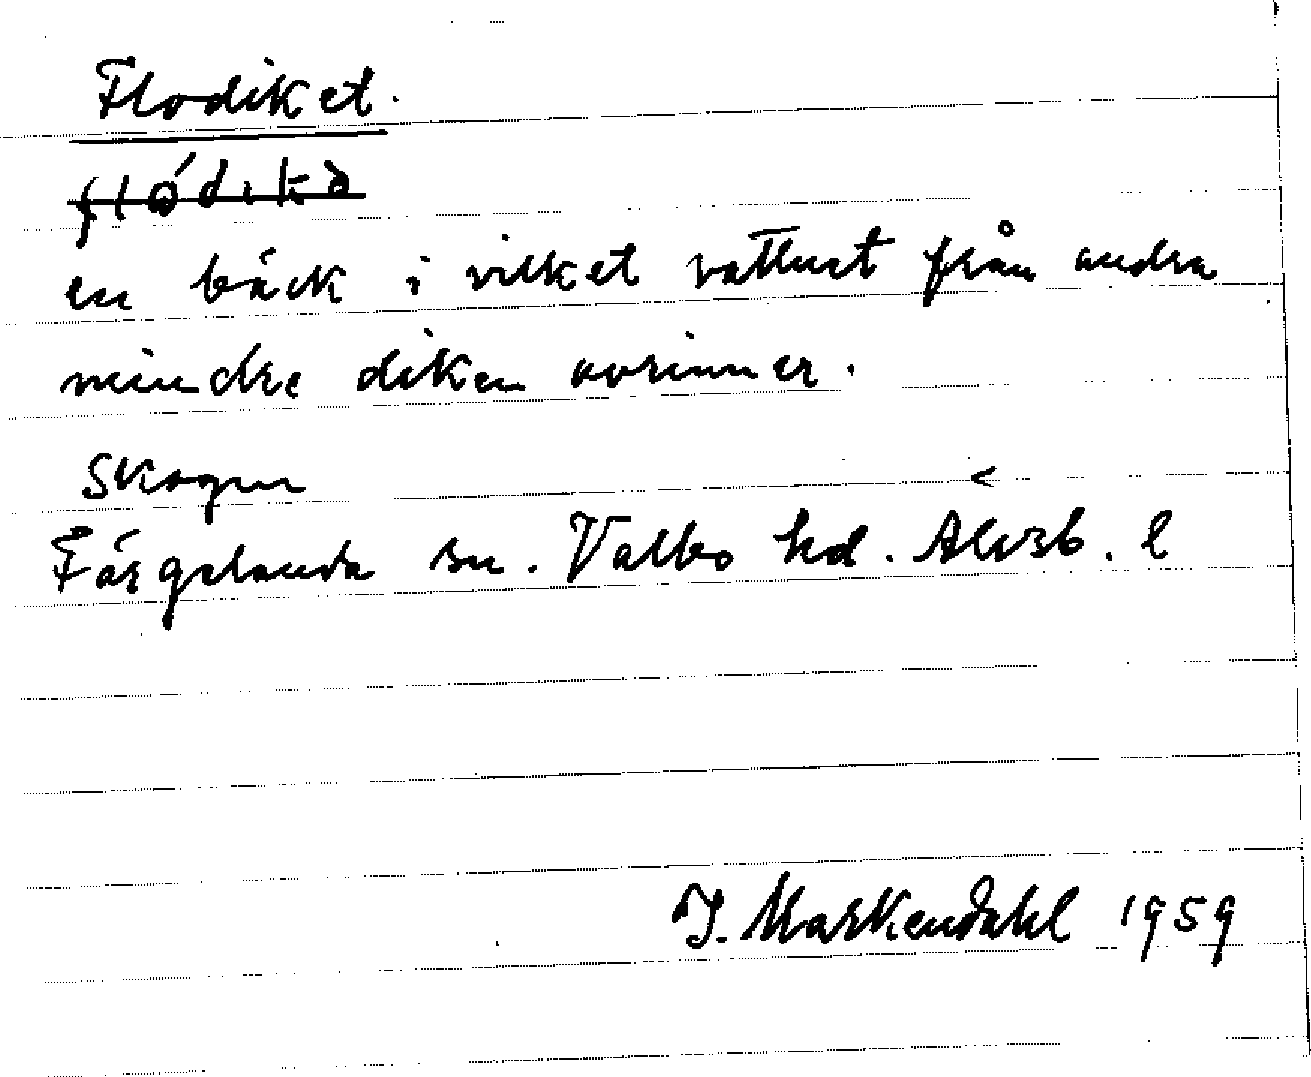 Flodiket.
en bäck i vilket vattnet från andra
mindre diken avrinner.
Skogen
Färgelanda sn. Valbo hd. Älvsb. l
I. Markendahl 1959